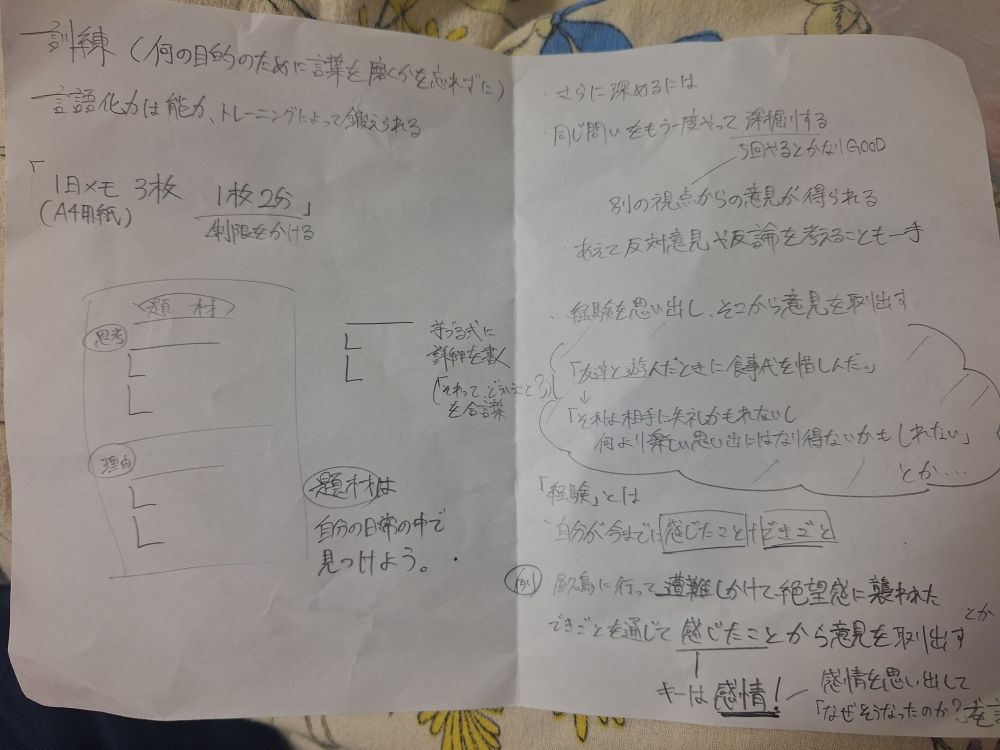 訓練(何の目的のために言葉を磨くかを忘れずに)
言語化力は能力、トレーニングによって鍛えられる
「1日メモ3枚 1枚2分」
(A4用紙) 制限をかける
題材
思考
理由
芋づる式に
詳細を書く
(「それって、どういうこと?」
を合言葉
題材は
自分の日常の中で
見つけよう。
さらに深めるには
同じ問いをもう一度やって深掘りする
5回やるとかなりGOOD
別の視点からの意見が得られる
・あえて反対意見や反論を考えることも一手
・経験を思い出し、そこから意見を取出す
「友達と遊んだときに食事代を惜しんだ。」
↓
「それは相手に失礼かもれないし
何より楽しい思い出にはなり得ないかもしれない」
とか…
「経験」とは
自分が今までに感じたこと+できごと
例 屋久島に行って遭難しかけて、絶望感に襲われた
とか
できごとを通じて感じたことから意見を取り出す
キーは感情!
感情を思い出して
「なぜそうなったのか?」を言